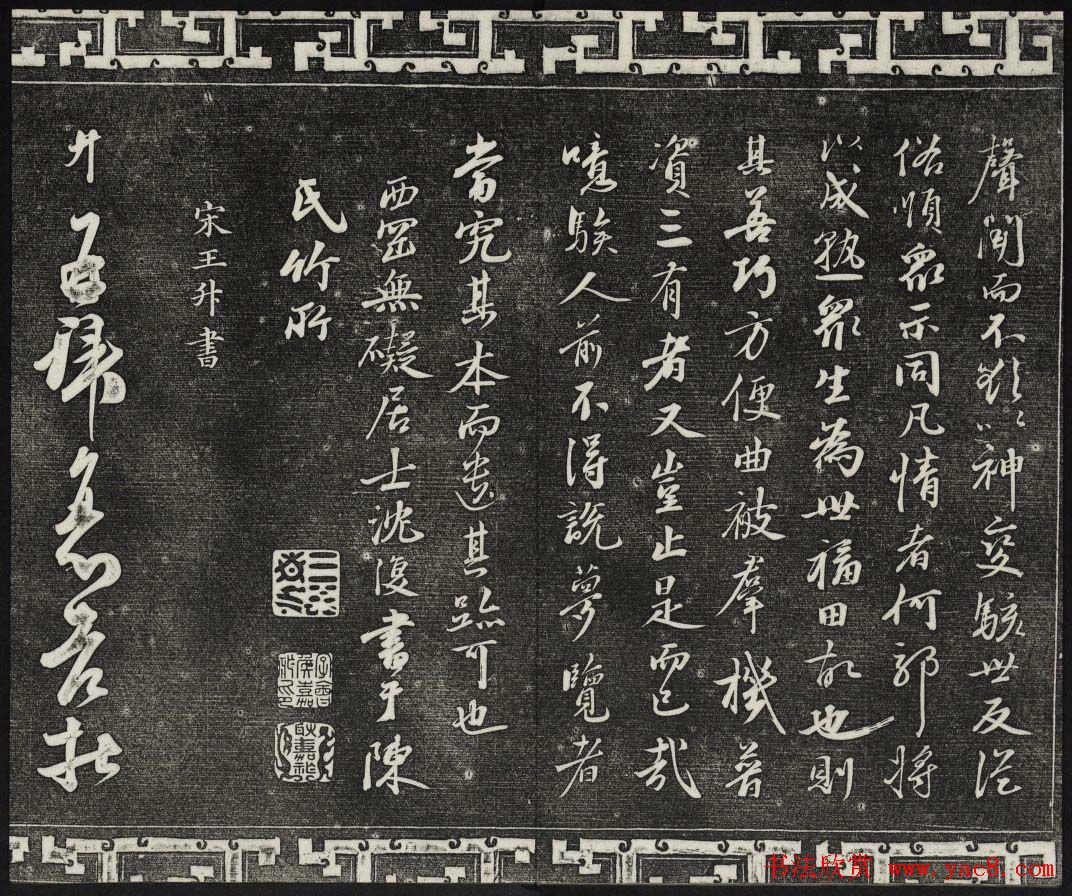 聲聞而不欲以神變駭世反從
俗順眾示同凡情者何郭將
以成孰眾生為世福田故也則
其善巧方便曲被羣機普
資三有者又豈止是而已哉
噫騃人前不得說夢覽者
當究其本而遺其跡可也
西罡無礙居士沈復書于陳
氏竹所
宋王升書
升
书法欣赏 www.yac8.com